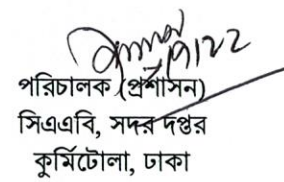 পরিচালক (প্রশাসন)
সিএএবি, সদর দপ্তর
কুর্মিটোলা, ঢাকা